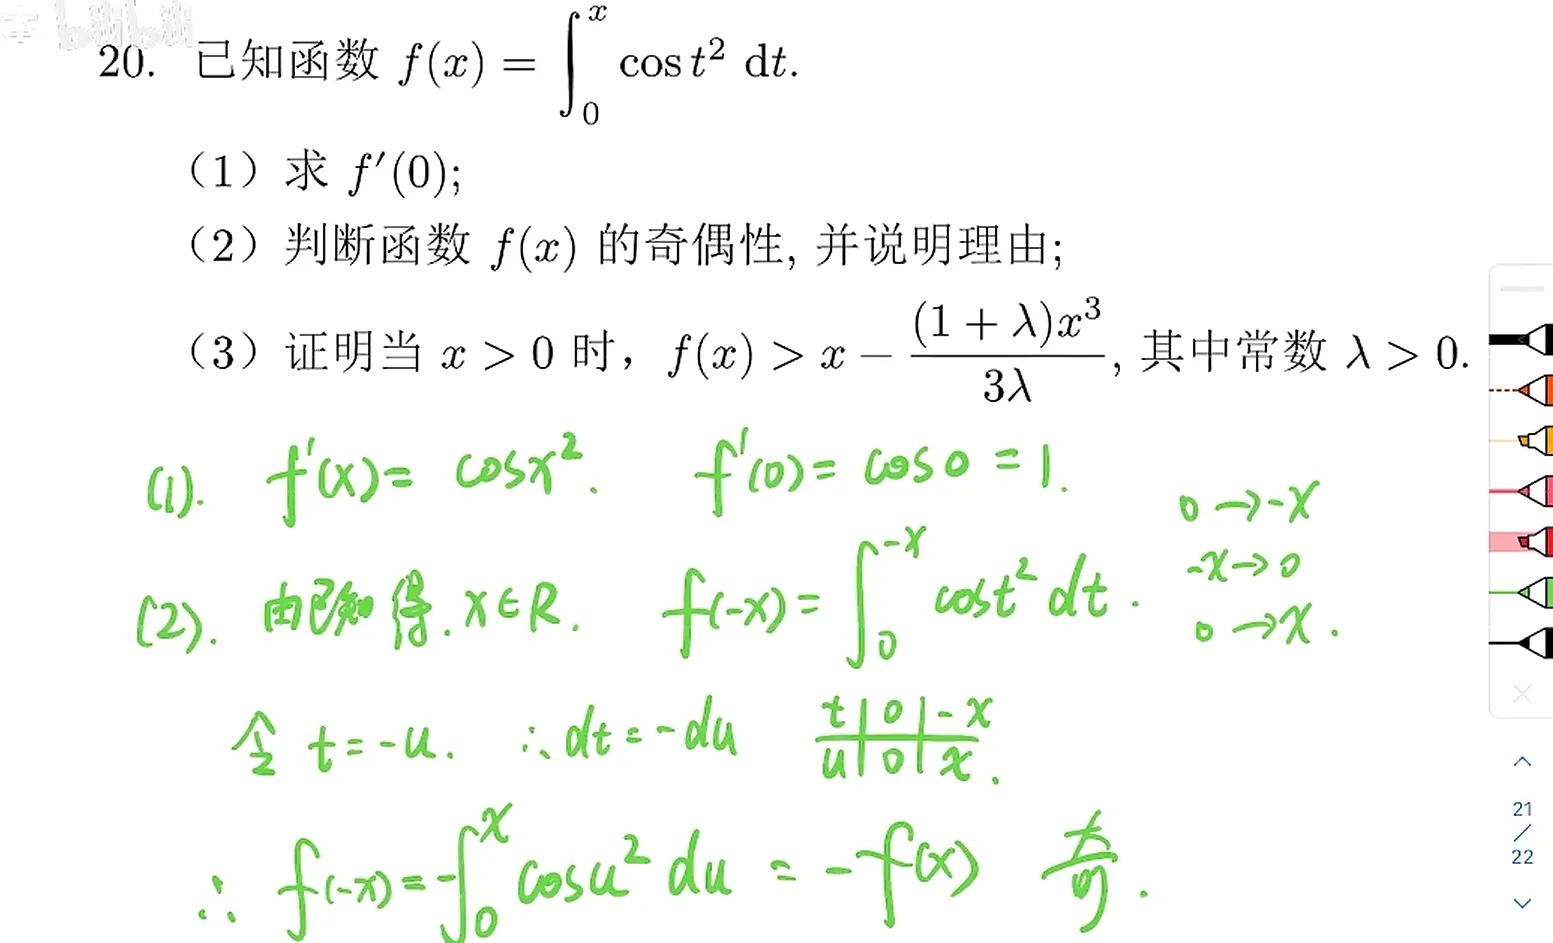 bilibili
20. 已知函数 f(x) = ∫₀ˣ cos t² dt.
（1）求 f′(0);
（2）判断函数 f(x) 的奇偶性, 并说明理由;
（3）证明当 x > 0 时，f(x) > x − (1 + λ)x³ / 3λ, 其中常数 λ > 0.
(1). f′(x) = cosx². f′(0) = cos0 = 1.
0 → -x
-x → 0
0 → x.
(2). 由已知得. x∈R. f(-x) = ∫₀⁻ˣ cost² dt.
令 t = -u. ∴ dt = -du
t | 0 | -x
u | 0 | x.
∴ f(-x) = -∫₀ˣ cosu² du = -f(x) 奇.
21
/
22